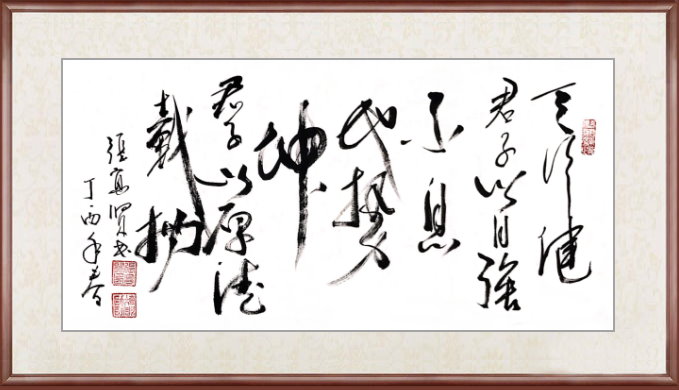 天行健
君子以自強
不息
地勢
坤
君子以厚德
載物
張賢书
丁酉年春